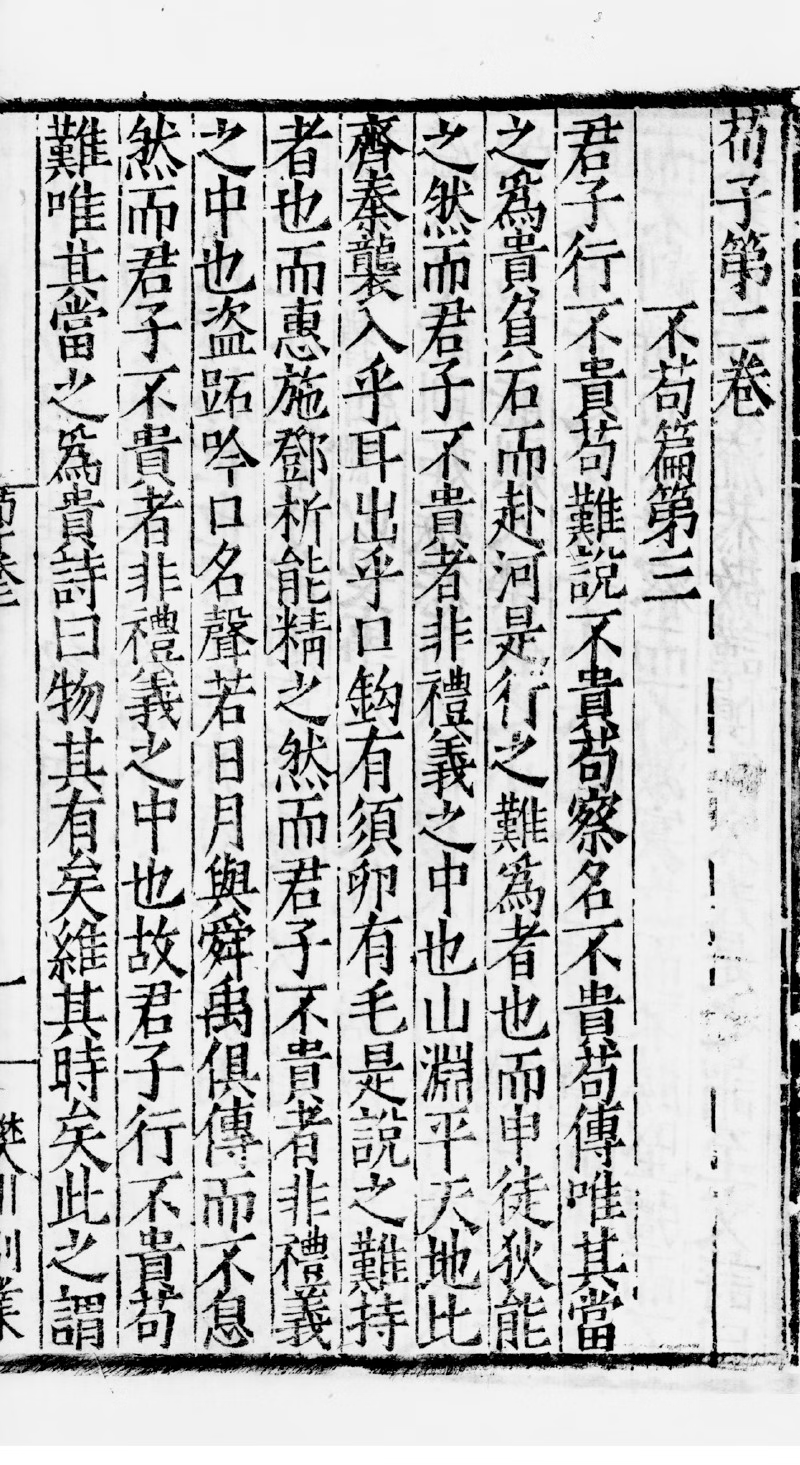 荀子第二卷
不苟篇第三
君子行不貴苟難說不貴苟察名不貴苟傳唯其當
之爲貴負石而赴河是行之難爲者也而申徒狄能
之然而君子不貴者非禮義之中也山淵平天地比
齊秦襲入乎耳出乎口鈎有須卵有毛是說之難持
者也而惠施鄧析能精之然而君子不貴者非禮義
之中也盜跖吟口名聲若日月與舜禹俱傳而不息
然而君子不貴者非禮義之中也故君子行不貴苟
難唯其當之爲貴詩曰物其有矣維其時矣此之謂